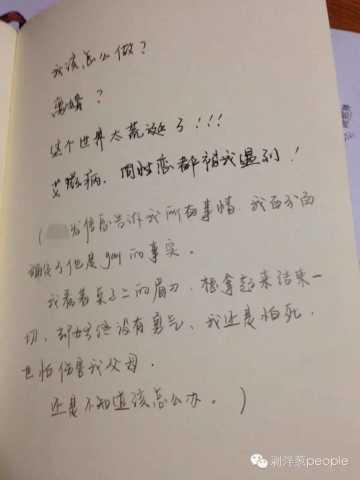 我该怎么做?
离婚?
这个世界太荒诞了!!!
艾滋病、同性恋都被我遇到!
( 发信息告诉我所有事情 我百分百
确定了他是gay的事实。
我看着桌子上的眉刀,想拿起来结束一
切,却始终没有勇气,我还是怕死,
也怕伤害我父母.
还是不知道该怎么办。)
剥洋葱people